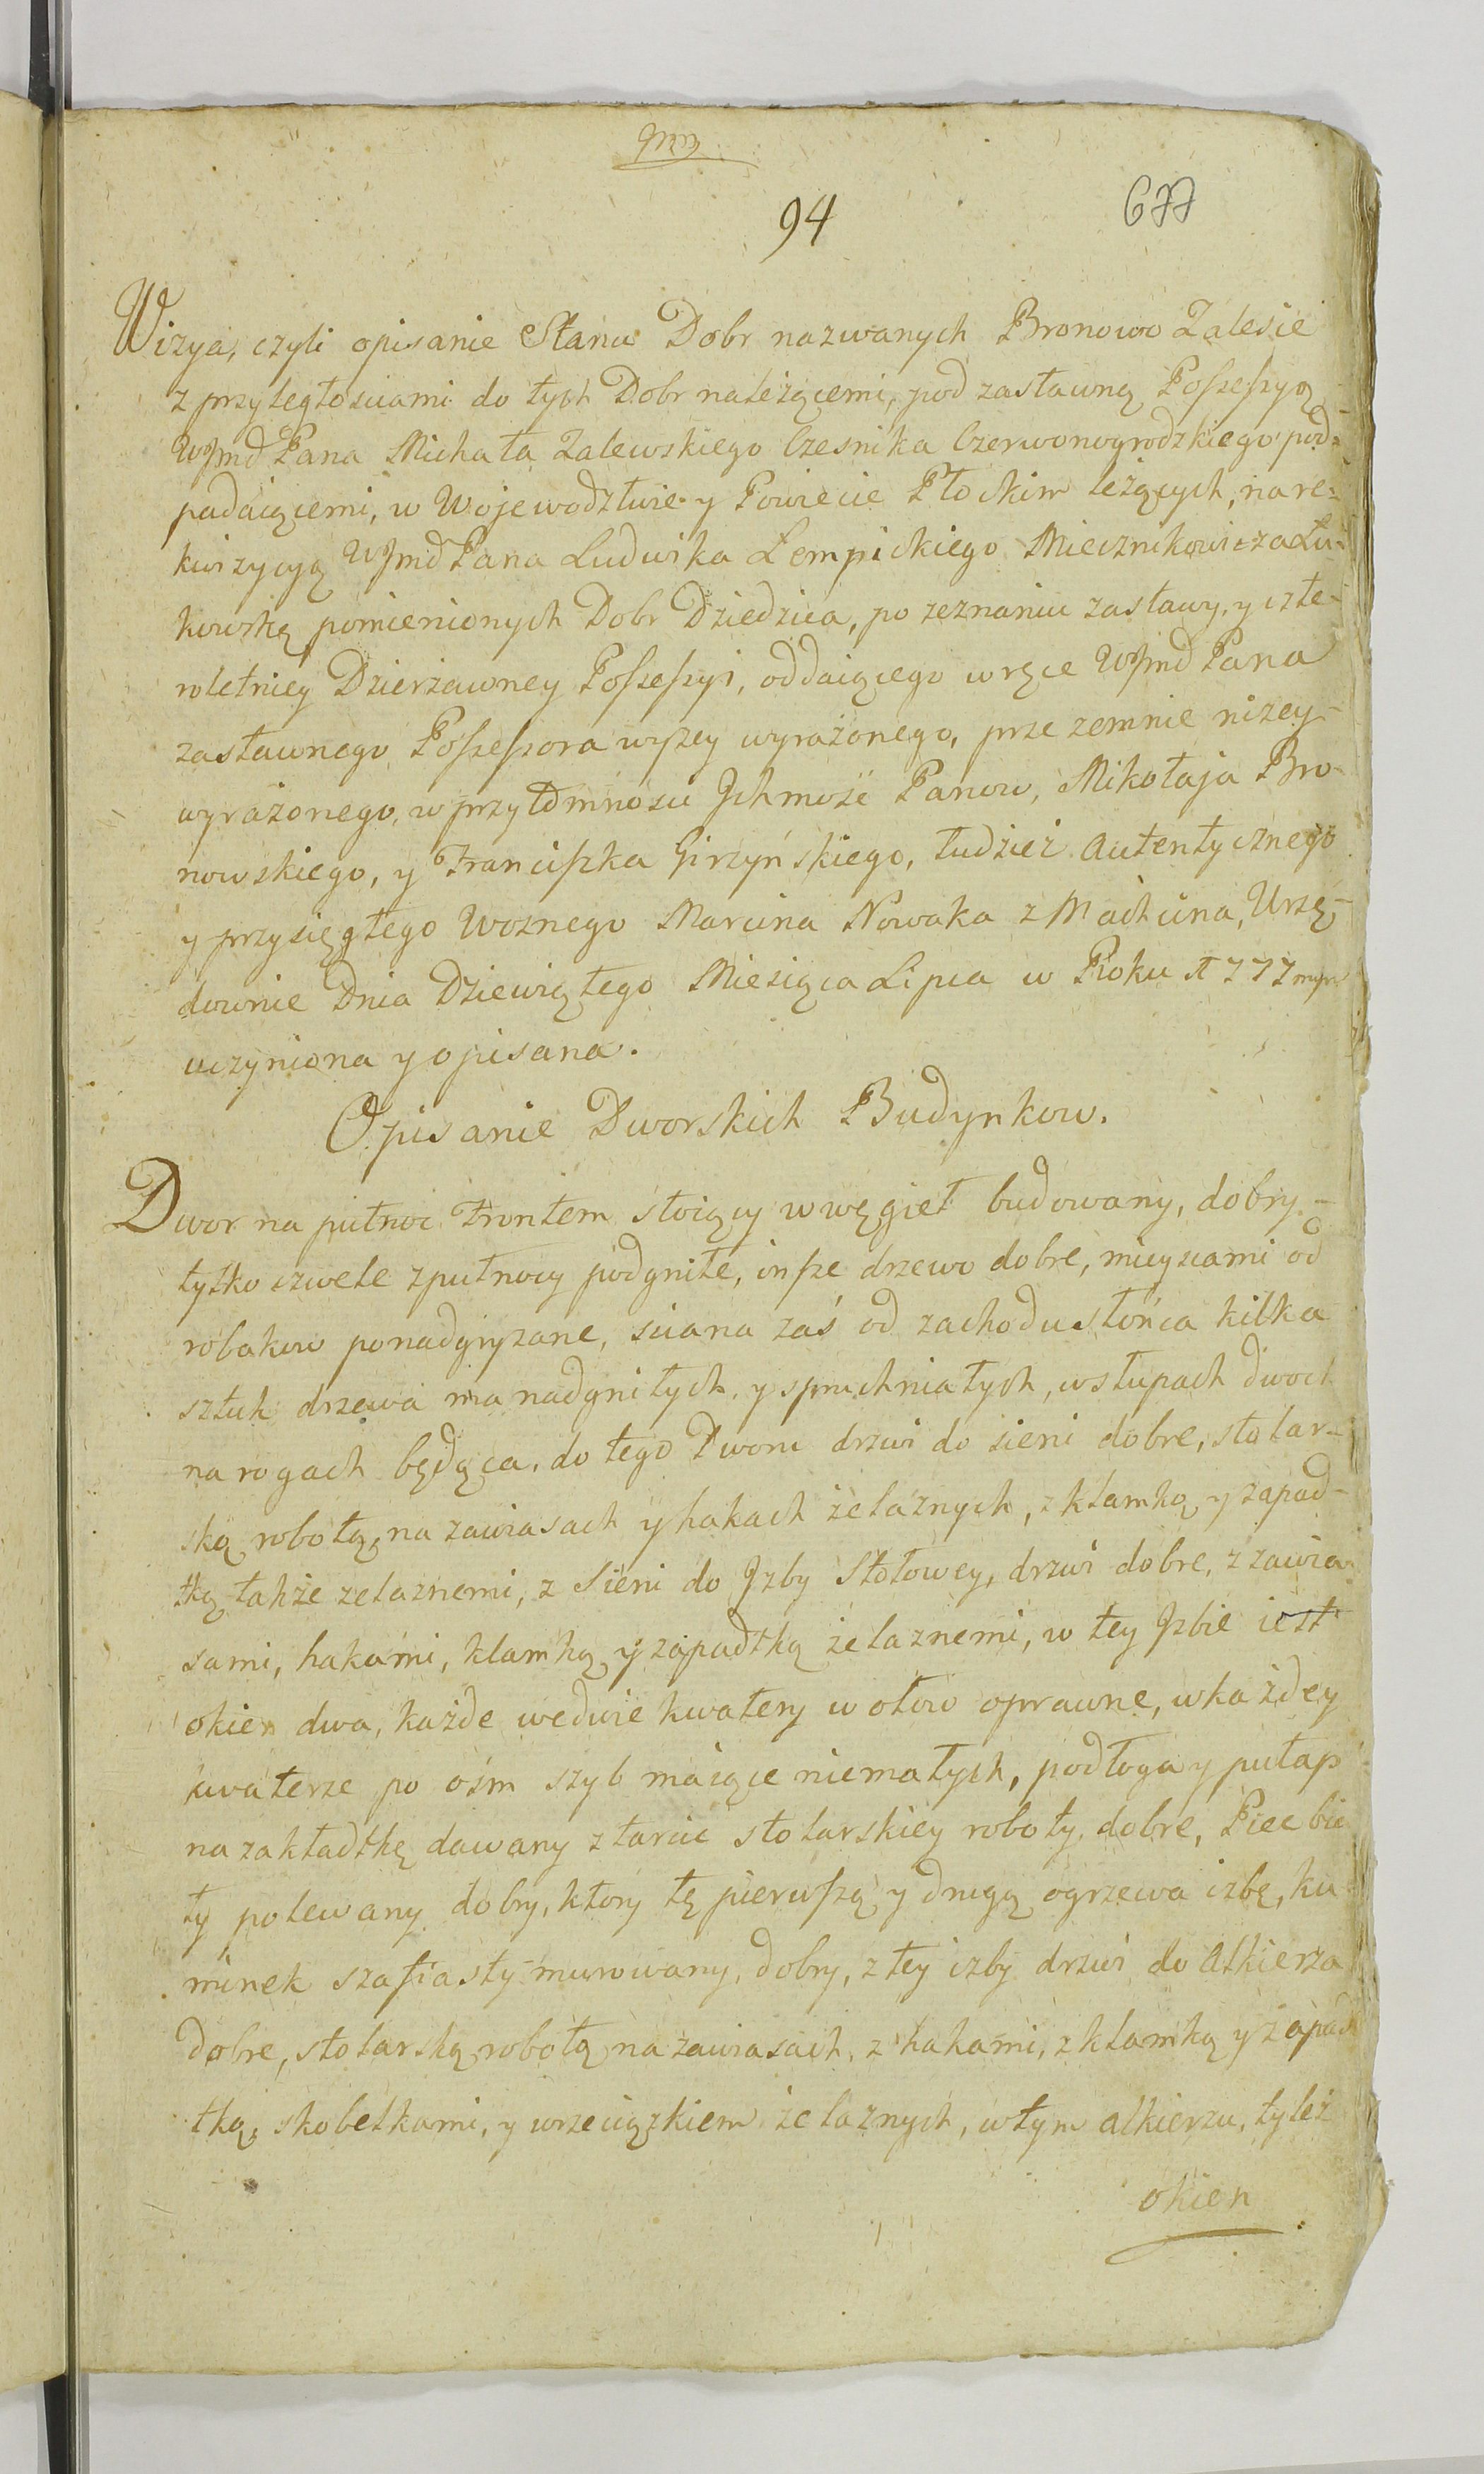 94
677
Wizya, czyli opisanie Stanu Dobr nazwanych Bronowo Zalesie
z przyległosciami do tych Dobr należącemi, pod zastawną Possessyą
WJmć Pana Michała Zalewskiego Czesnika Czerwonogrodzkiego pod-
padaiącemi, w Wojewodztwie y Powiecie Płockim leżących, na re-
kwizycyą WJmć Pana Ludwika Lempickiego Miecznikowicza Łu-
kowską pomienionych Dobr Dziedzica, po zeznaniu zastawy, y czte-
roletniey Dzierżawney Possessyi, oddaiącego w ręce WJmć Pana
zastawnego Possessora wyżey wyrażonego, prze zemnie niżey-
wyrażonego, w przytomnosci Jchmość Panow, Mikołaja Bro-
nowskiego, y Franciszka Girzyńskiego, tudzież Autentycznego
y przysięgłego Woznego Marcina Nowaka z Machcina, Urzę-
downie Dnia Dziewiątego Miesiąca Lipca w Roku 1777mym
uczyniona y opisana.
Opisanie Dworskich Budynkow.
Dwor na pułnoc Frontem stoiący w węgieł budowany, dobry-
tylko cwele z pułnocy podgniłe, insze drzewo dobre, mieyscami od
robakow ponadgryzane, sciana zaś od zachodu słońca kilka
sztuk drzewa ma nadgniłych, y spruchniałych, w słupach dwoch
na rogach będąca, do tego Dworu drzwi do sieni dobre, stolar-
ską robotą, na zawiasach y hakach żelaznych, z klamką y zapad-
łką także żelaznemi, z Sieni do Jzby Stołowey, drzwi dobre, z zawia-
sami, hakami, klamką y zapadłką żelaznemi, w tey Jzbie iest
okien dwa, każde we dwie kwatery w ołow oprawne, w każdey
kwaterze po ośm szyb maiące niemałych, podłoga y pułap
na zakładkę dawany z tarcic stolarskiey roboty, dobre, Piec bia
ły polewany dobry, ktory tę pierwszą y drugą ogrzewa izbę, ku
minek szafiasty murowany, dobry, z tey izby drzwi do Alkierza
dobre, stolarską robotą na zawiasach, z hakami, z klamką y zapad
łką, skobelkami, y wrzeciązkiem żelaznych, w tym alkierzu, tyleż
okien